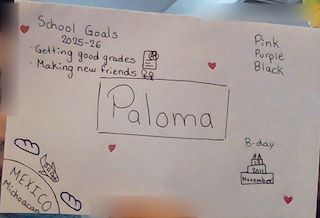 School Goals
2025-26
· Getting good grades
· Making new friends
Pink
Purple
Black
Paloma
B-day
13
2011
November
MEXICO
Michoacan